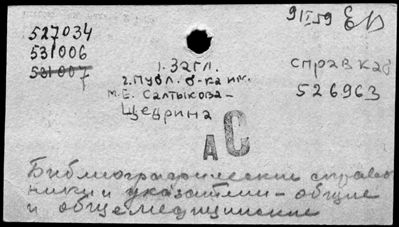 527034
531006
531007
9 IX 59
1. Загл.
2. Публ. б-ка им.
М.Е. Салтыкова-
Щедрина
справка
526963
АС
Библиографические справоч
ники и указатели - общие
и общемедицинские